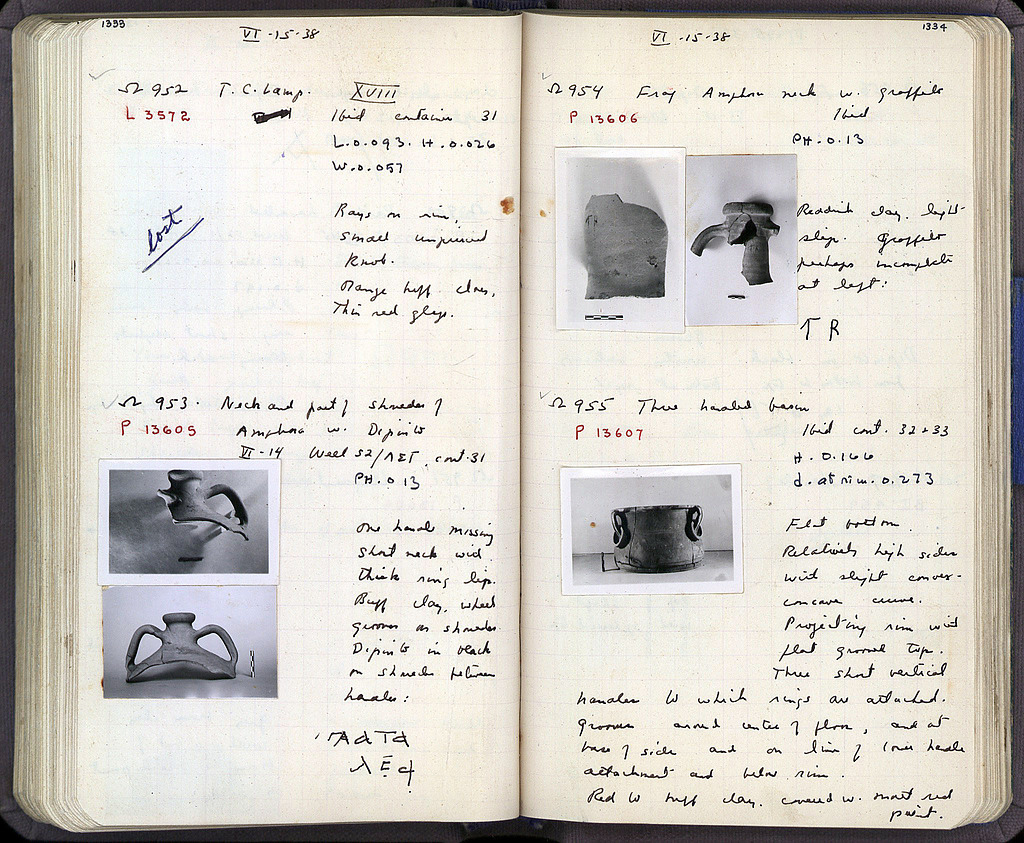 1333
VI -15-38
Ω 952 T. C. Lamp. XVIII
L 3572 Ibid container 31
L. 0.093. H. 0.026
W. 0.057
lost
Rays on rim,
small unpierced
knob.
Orange buff clay,
Thin red glaze.
Ω 953. Neck and part of shoulder of
P 13605 Amphora w. Dipinto
VI -14 Well 52/ΛΣΤ, cont. 31
PH. 0.13
One handle missing
short neck with
thick ring lip.
Buff clay, wheel
grooves on shoulder
Dipinto in black
on shoulder between
handles:
1334
VI -15-38
Ω 954 Frag Amphora neck w. graffito
P 13606 Ibid
PH. 0.13
Reddish clay, light
slip. Graffito
perhaps incomplete
at left:
Γ R
Ω 955 Three handled basin
P 13607 Ibid cont. 32+33
H. 0.166
d. at rim. 0.273
Flat bottom
Relatively high sides
with slight convex-
concave curve.
Projecting rim with
flat grooved top.
Three short vertical
handles to which rings are attached.
Grooves around center of floor, and at
base of side and on line of lower handle
attachment and below rim.
Red to buff clay, covered w. matt red
paint.